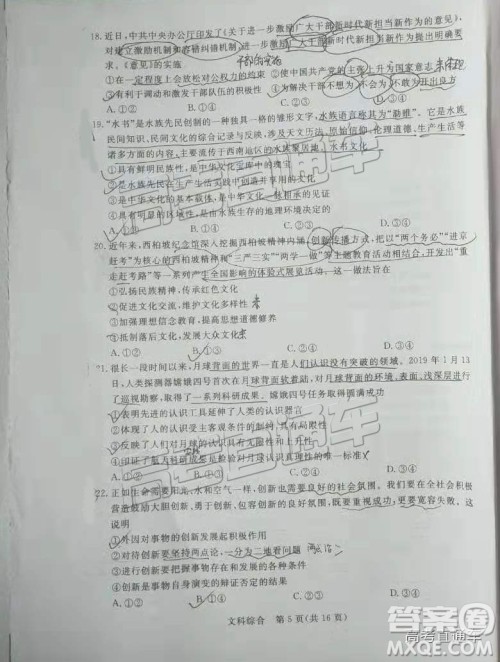 18. 近日，中共中央办公厅印发了《关于进一步激励广大干部新时代新担当新作为的意见》，
对建立激励机制和容错纠错机制，进一步激励广大干部新时代新担当新作为提出明确要
求。《意见》的实施
①在一定程度上会放松对公权力的约束 ②使中国共产党的主张上升为国家意志
③有利于调动和激发干部队伍的积极性 ④为解决干部不想为、不会为、不敢为开出良方
A. ①② B. ①③ C. ②④ D. ③④
19. “水书”是水族先民创制的一种独具一格的雏形文字，水族语言称其为“勒睢”。它是水族
民间知识、民间文化的综合记录与反映，涉及天文历法、原始信仰、伦理道德、生产生活等
诸多方面的内容，主要流传于西南地区的水族聚居地。水书文化
①具有鲜明民族性，是中华文化宝库中的瑰宝
②是水族先民在生产生活实践中创造的，具有独特性
③是中华文化的基本载体，是中华文化一脉相承的见证
④具有多样性，是水族生存的地理环境决定的
A. ①② B. ①③ C. ②④ D. ③④
20. 近年来，西柏坡纪念馆深入挖掘西柏坡精神内涵，创新传播方式，把“两个务必”“进京
赶考”为核心的西柏坡精神和“三严三实”“两学一做”等主题教育活动相结合，开发出“重
走赶考路”等一系列产生全国影响的体验式展览活动。这一做法旨在
①弘扬民族精神，传承红色文化
②促进文化交流，维护文化多样性
③加强理想信念教育，提高思想道德修养
④抵制落后文化，发展大众文化
A. ①② B. ①③ C. ②④ D. ③④
21. 很长一段时间以来，月球背面的世界一直是人们认识没有突破的领域。2019年1月13
日，人类探测器嫦娥四号首次在月球背面软着陆，对月球背面的环境、表面、浅深层进行
了巡视勘察，取得了一系列科研成果。嫦娥四号登陆月球背面软着陆并勘探取得圆满成功
①表明先进的认识工具延伸了人类的认识器官
②体现了人的认识受主客观条件的限制，具有反复性
③反映了人们对月球的认识具有无限性和上升性
④印证了航天科研成果是检验认识的真理性的唯一标准
A. ①② B. ①③ C. ②④ D. ③④
22. 正如生命需要阳光、水和空气一样，创新也需要良好的社会氛围。我们在全社会积极
营造鼓励大胆创新、勇于创新、包容创新的良好氛围，既要重视成功，更要宽容失败。这
说明
①外因对事物的创新发展起积极作用
②对待创新要坚持两点论，一分为二地看问题
③创新要把握事物存在和发展的客观条件
④创新是事物自身演变的辩证否定的结果
A. ①② B. ①④ C. ②③ D. ③④
文科综合 第5页(共16页)
高考直通车
答案圈